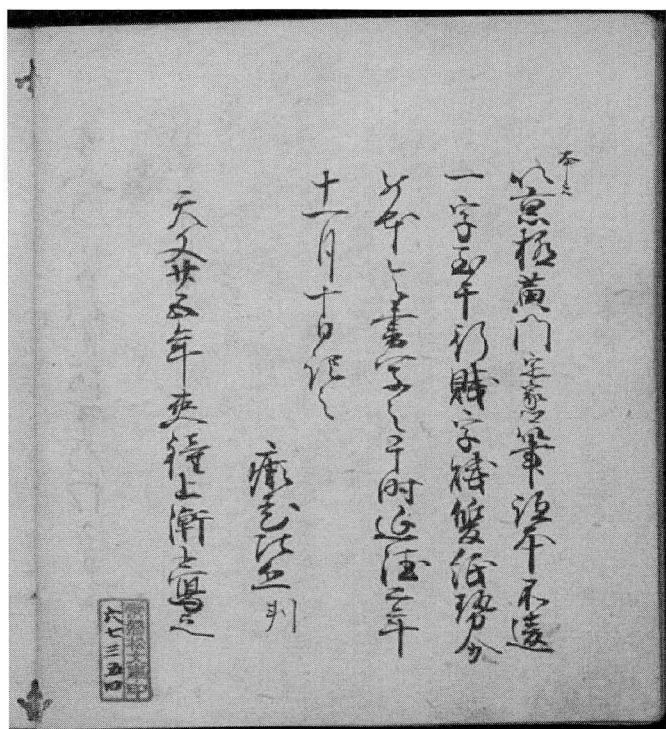 本云
以京極黄門定家筆跡本不違
一字至于行賦字賦雙紙勢分
如本令書写之于時延徳二年
十一月十日記之
癲老比丘判
天文廿五年夾鐘上澣書写之
六七三五四